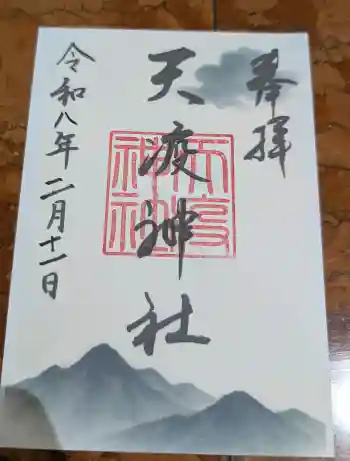 奉拝
天度神社
天度神社
令和八年二月十一日